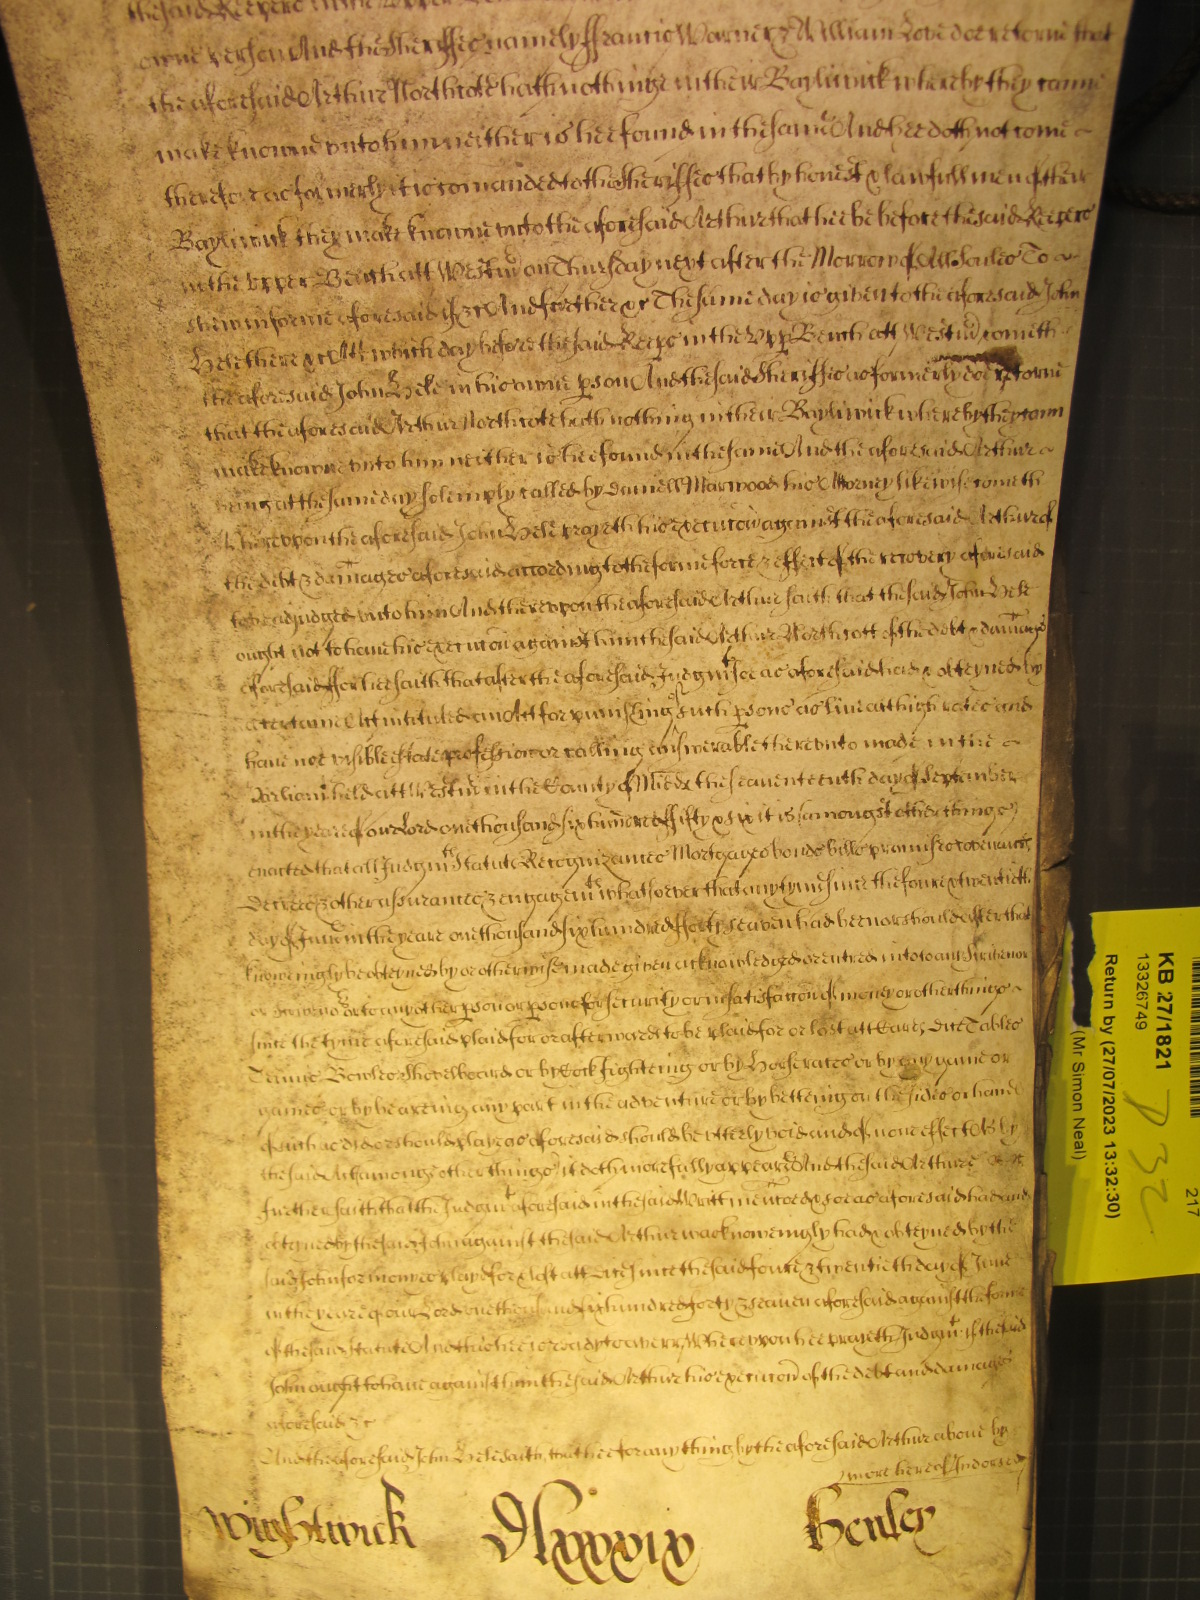 the said Keepers in the Upper
owne person And the Sheriffes namely Ffrancis Warner & William Love doe retorne that
the aforesaid Arthur Northcote hath nothinge in their Bayliwick whereby they cann
make knowne vnto him neither is hee found in the same And hee doth not come
therefore as formerly it is comanded to the Sheriffes that by honest & lawfull men of their
Bayliwick they make knowne vnto the aforesaid Arthur that hee be before the said Keepers
in the vpper Bench att Westm̄ on Thursday next after the Morrow of All Soules To
shew in forme aforesaid if &c And further &c The same day is given to the aforesaid John
Hele there &c Att which day before the said Keeps in the Vpp Bench att Westm̄ cometh
the aforesaid John Hele in his owne pson And the said Sheriffes as formerly doe retorne
that the aforesaid Arthur Northcote hath nothing in their Bayliwick whereby they cann
make knowne vnto him neither is hee found in the same And the aforesaid Arthur
being at the same day solemply called by Daniell Marwood his Attorney likewise cometh
Wherevpon the aforesaid John Hele prayeth his execucōn against the aforesaid Arthur of
the debt & damages aforesaid according to the forme force & effect of the recovery aforesaid
to be adjudged vnto him And therevpon the aforesaid Arthur saith that the said John Hele
ought not to have his execucōn against him the said Arthur Northcott of the debt & damages
aforesaid Ffor hee saith that after the aforesaid Judgmt soe as aforesaid had & obteyned by
a certaine Act intituled an Act for punishing of such psons as live at high rates and
have noe visible estate profession or calling answerable therevnto made in the
Parliamt held att Westm̄ in the County of Midd̄ the seaventeenth day of September
in the yeare of our Lord one thousand six hundred ffifty & six it is (amongst other things)
enacted that all Judgmts Statutes Recognizances Mortgages bonds bills promises covenants
Decrees & other assurances & engagemts whatsoever that any tyme since the foure & twentieth
day of June in the yeare one thousand six hundred fforty seaven had been or should after that
knoweingly be obteyned by or otherwise made given acknowledged or entred into to any
or to any other pson or psons for security or in satisfaccōn of money or other things
since the tyme aforesaid plaid for or afterward to be plaid for or lost att Cards Dice Tables
Tennis Bowles Shovelboard or by Cock fighting or by Horseraces or by any game or
games or by beareing any part in the adventure or by betting on the sides or hands
of such as did or should play as aforesaid should be vtterly void and of none effect As by
the said Act amongst other things it doth more fully appeare And the said Arthur
further saith that the Judgmt aforesaid in the said Writt mencōed & soe as aforesaid had and
obteyned by the said John against the said Arthur was knoweingly had & obteyned by the
said John for money playd for & lost att Dice since the said foure & twentieth day of June
in the yeare of our Lord one thousand six hundred forty & seaven aforesaid against the forme
of the said Statute And this hee is ready to averr Wherevpon hee prayeth Judgmt if the said
John ought to have against him the said Arthur his execucōn of the debt and damages
aforesaid &c
And the aforesaid John Hele saith that hee for any thing by the aforesaid Arthur above by
more hereof Indorsed
Wightwick
Dlxxxix
Henley
KB 27/1821
13326749
Return by (27/07/2023 13:32:30)
(Mr Simon Neal)
217